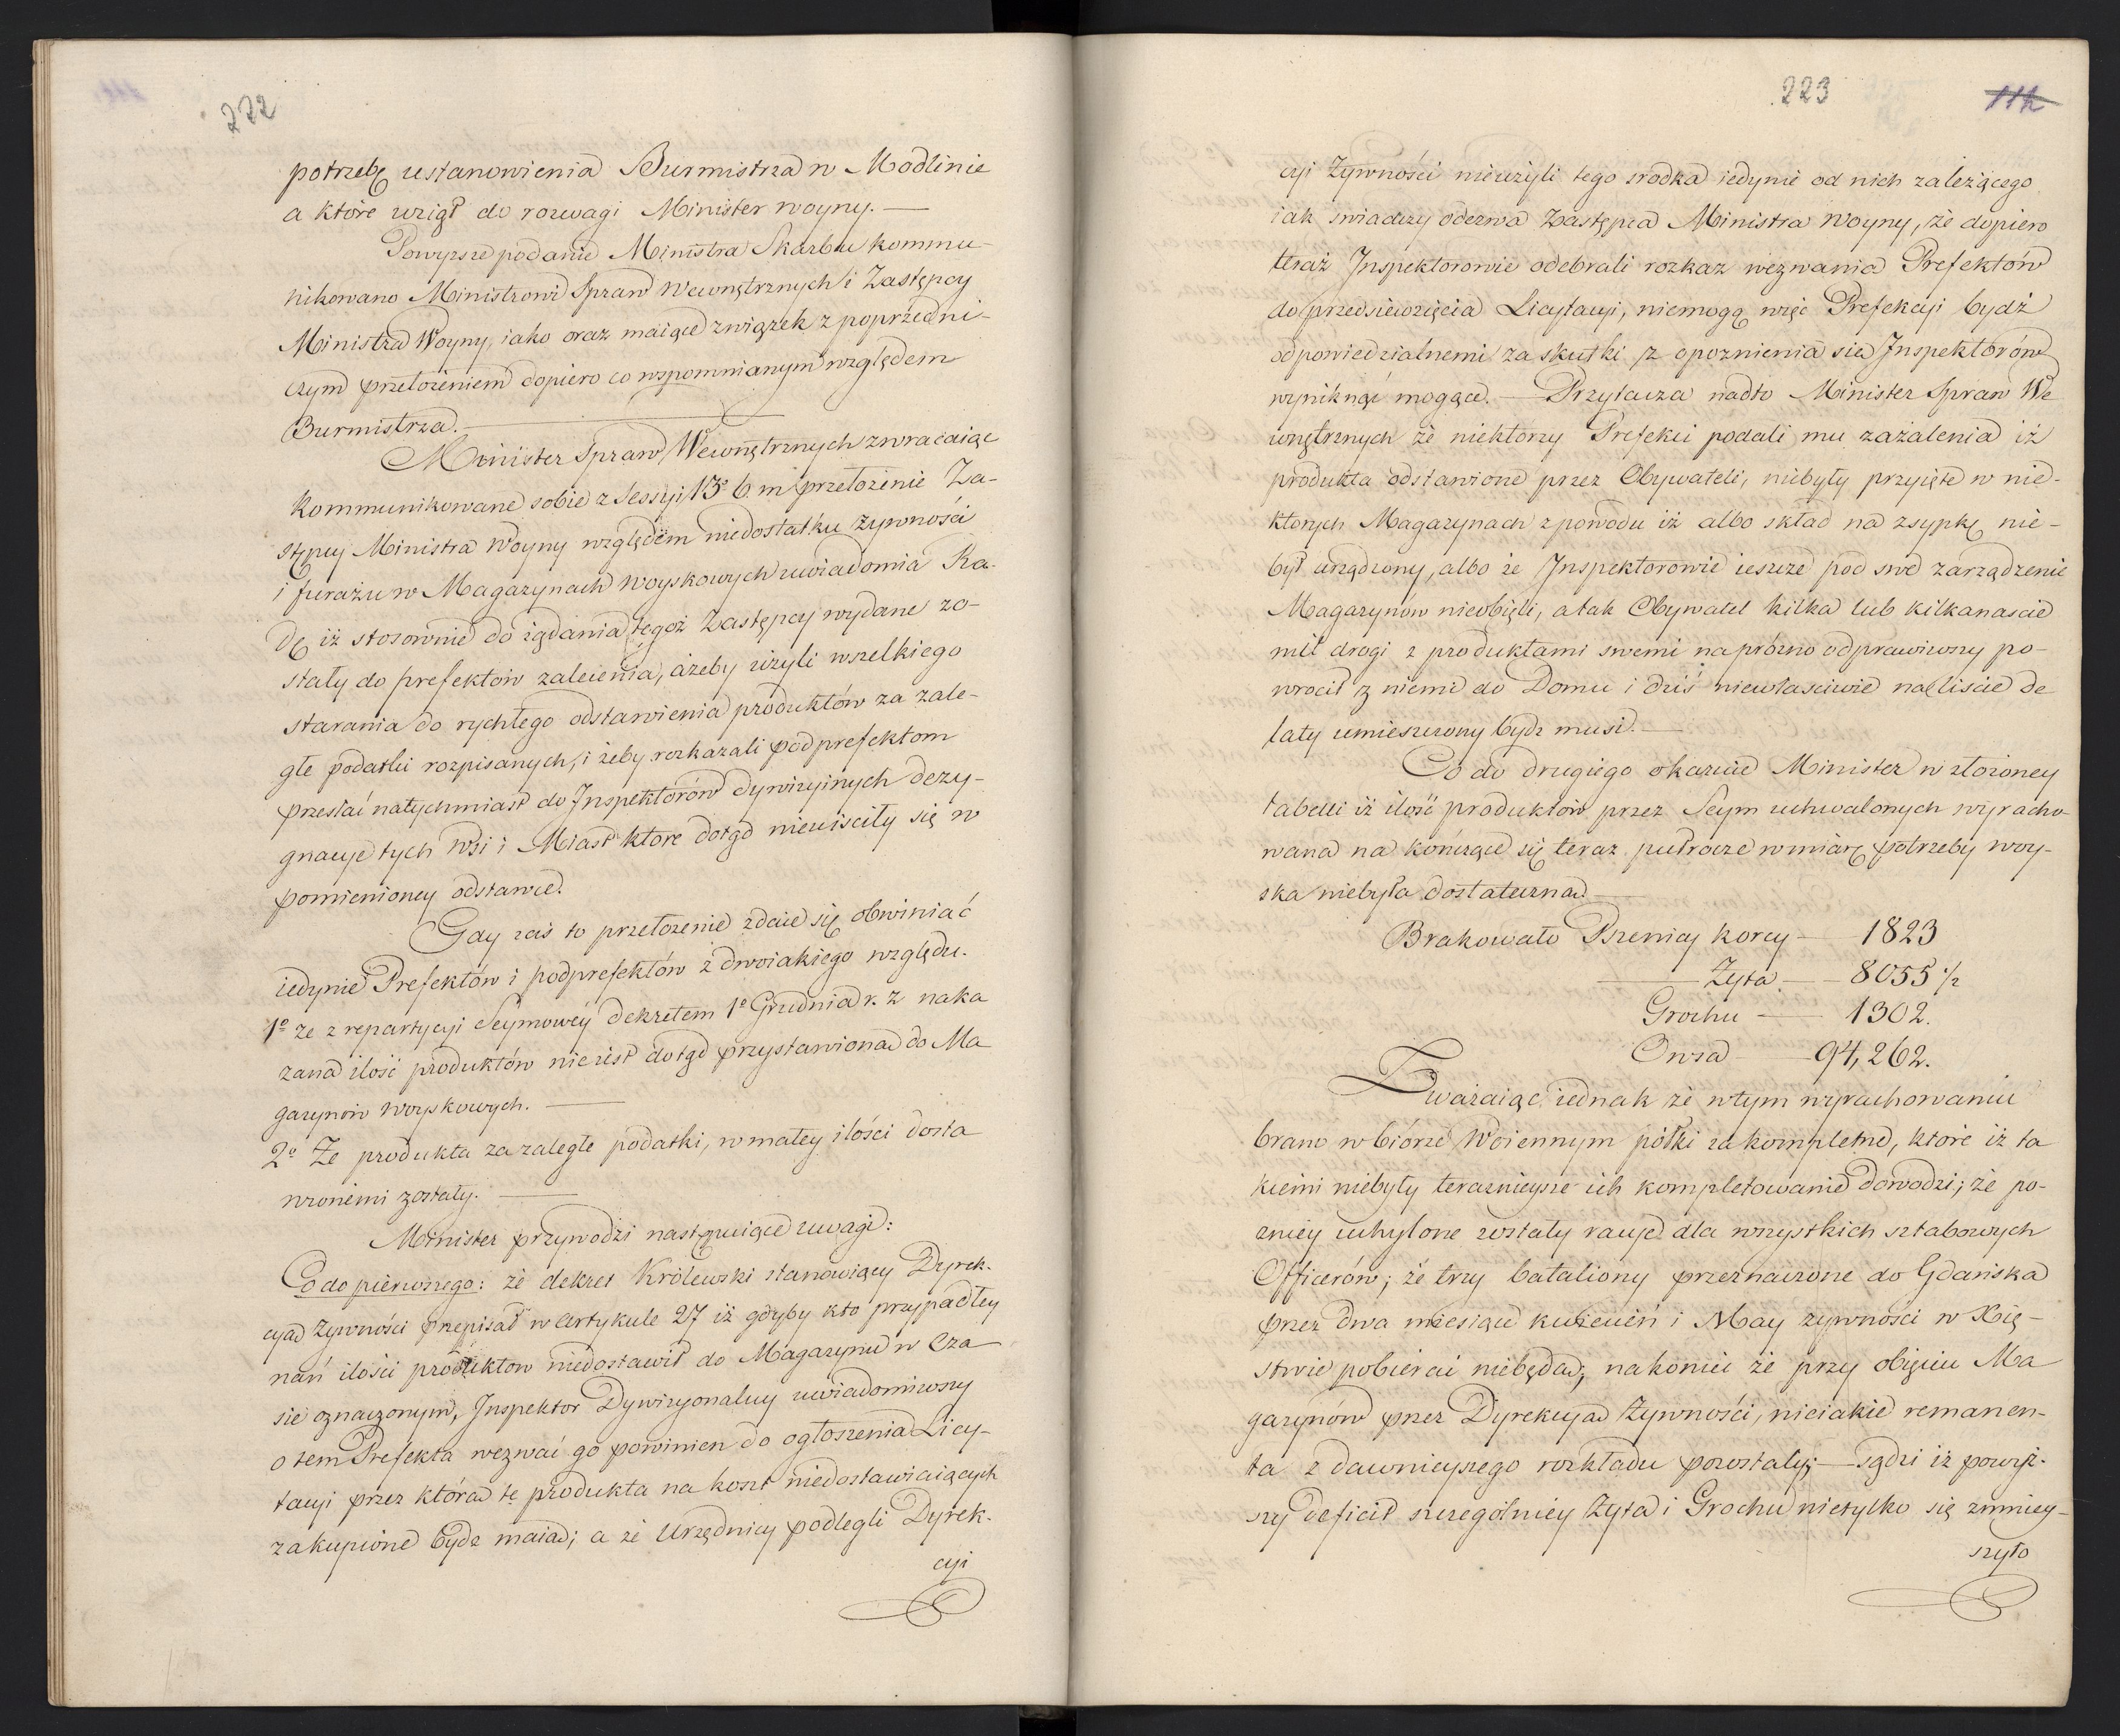 222
potrzebę ustanowienia Burmistrza w Modlinie
a które wziął do rozwagi Minister woyny. —
Powyższe podanie Ministra Skarbu kommu-
nikowano Ministrowi Spraw Wewnętrznych i Zastępcy
Ministra Woyny, iako oraz maiące związek z poprzedni-
czym przełożeniem dopiero co wspomnianym względem
Burmistrza. —
Minister Spraw Wewnętrznych zwracaiąc
kommunikowane sobie z Sessyi 13º b. m. przełożenie Za-
stępcy Ministra Woyny względem niedostatku żywności
i furażu w Magazynach Woyskowych uwiadomia Ra-
dę iż stosownie do żądania tegoż Zastępcy wydane zo-
stały do prefektow zalecenia, ażeby użyli wszelkiego
starania do rychłego odstawienia produktów za zale-
głe podatki rozpisanych, i żeby rozkazali podprefektom
przesłać natychmiast do Inspektorów dywizyinych dezy-
gnacye tych wsi i Miast ktore dotąd nieuiściły się w
pomienioney odstawie.
Gdy zaś to przełożenie zdaie się obwiniać
iedynie Prefektów i podprefektów z dwoiakiego względu.
1º że z repartycyi Seymowey dekretem 1º Grudnia r. z. naka
zana ilość produktów nie iest dotąd przystawiona do Ma
gazynów Woyskowych. —
2º Że produkta za zaległe podatki, w małey ilości dosta
wionemi zostały. —
Minister przywodzi następuiące uwagi:
Co do pierwszego: że dekret Królewski stanowiący Dyrek-
cyą żywności przepisał w Artykule 27 iż gdyby kto przypadłey
nań ilości produktow niedostawił do Magazynu w Cza
sie oznaczonym, Inspektor Dywizyonalny uwiadomiwszy
o tem Prefekta wezwać go powinien do ogłoszenia Licy-
tacyi przez którą te produkta na koszt niedostawiaiących
zakupione bydź maią; a że Urzędnicy podlegli Dyrek-
cyi
223
112
cyi Żywności nieużyli tego srodka iedynie od nich zależącego
iak swiadczy odezwa Zastępca Ministra Woyny, że dopiero
teraż Inspektorowie odebrali rozkaz wezwania Prefektów
do przedsiewzięcia Licytacyi, niemogą więc Prefekci bydź
odpowiedzialnemi za skutki z opoznienia sie Inspektorów
wyniknąć mogące. — Przytacza nadto Minister Spraw We
wnętrznych że niektorzy Prefekci podali mu zażalenia iż
produkta odstawione przez Obywateli, niebyły przyięte w nie-
ktorych Magazynach z powodu iż albo skład na zsypkę nie-
był urządzony, albo że Inspektorowie ieszcze pod swe zarządzenie
Magazynów nieobięli, a tak Obywatel kilka lub kilkanascie
mil drogi z produktami swemi napróżno odprawiwszy po-
wrocił z niemi do Domu i dziś niewłasciwie na liscie de
taty umieszczony bydź musi. —
Co do drugiego okazuie Minister w złożoney
tabelli iż ilość produktów przez Seym uchwalonych wyracho-
wana na kończące się teraz pułrocze w miarę potrzeby woy-
ska niebyła dostateczna. —
Brakowało Pszenicy korcy — 1823
— Żyta — 8055 ½
Grochu — 1302.
Owsa — 94,262.
Zważaiąc iednak że w tym wyrachowaniu
brano w biórze Woiennym półki za kompletne, które iż ta
kiemi niebyły teraznieysze ich kompletowanie dowodzi; że po-
zniey uchylone zostały racye dla wszystkich sztabowych
Officerów; że trzy bataliony przeznaczone do Gdańska
przez dwa miesiące kwiecień i May żywności w Xię-
stwie pobierać niebędą; nakoniec że przy obięciu Ma
gazynów przez Dyrekcyą Żywności, nieiakie remanen-
ta z dawnieyszego rozkładu pozostały; — sądzi iż powyż-
szy deficit szczególniey Żyta i Grochu nietylko się zmniey-
szyło